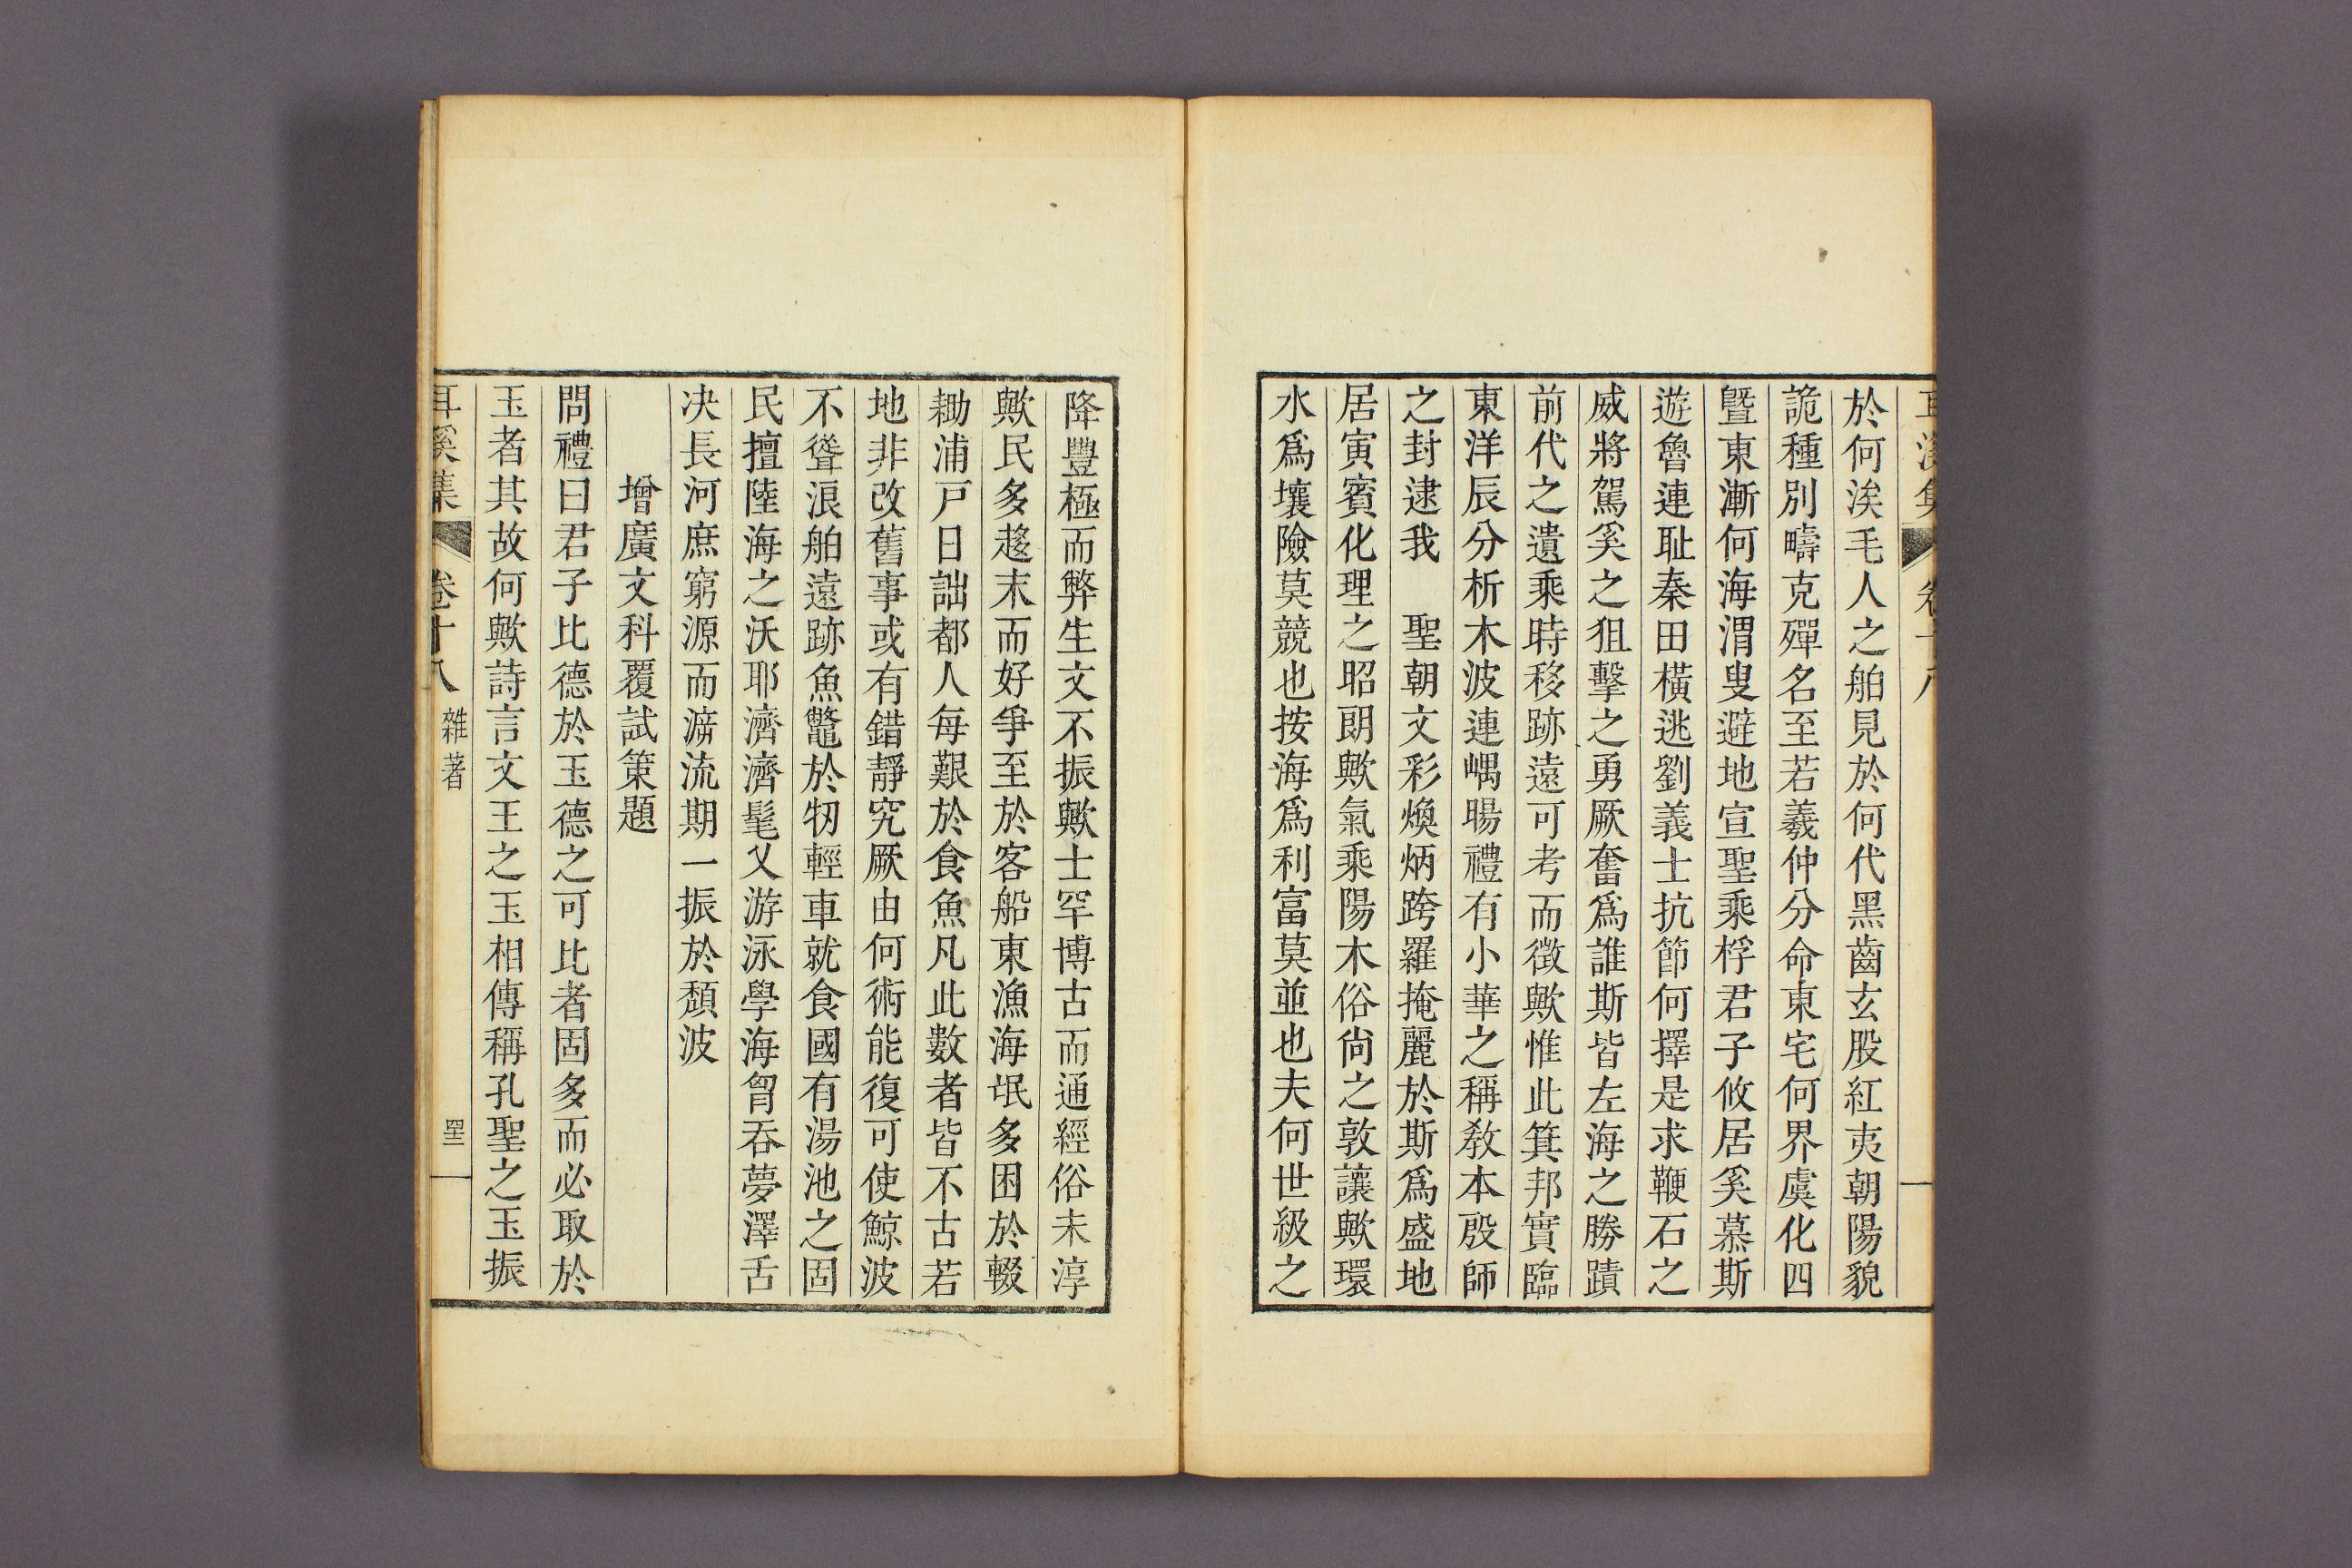 於何涘毛人之舶見於何代黑齒玄股紅夷朝陽貌
詭種別疇克殫名至若羲仲分命東宅何界虞化四
曁東漸何海渭叟避地宣聖乘桴君子攸居奚慕斯
遊魯連耻秦田橫逃劉義士抗節何擇是求鞭石之
威將駕奚之狙擊之勇厥奮爲誰斯皆左海之勝蹟
前代之遺乘時移跡遠可考而徵歟惟此箕邦實臨
東洋辰分析木波連嵎暘禮有小華之稱敎本殷師
之封逮我　聖朝文彩煥炳跨羅掩麗於斯爲盛地
居寅賓化理之昭朗歟氣乘陽木俗尙之敦讓歟環
水爲壤險莫競也按海爲利富莫並也夫何世級之
降豐極而弊生文不振歟士罕博古而通經俗未淳
歟民多趍末而好爭至於客船東漁海氓多困於輟
耡浦戶日詘都人每艱於食魚凡此數者皆不古若
地非改舊事或有錯靜究厥由何術能復可使鯨波
不聳浪舶遠跡魚鼈於牣輕車就食國有湯池之固
民擅陸海之沃耶濟濟髦乂游泳學海胷呑夢澤舌
决長河庶窮源而㴑流期一振於頹波
增廣文科覆試策題
問禮曰君子比德於玉德之可比者固多而必取於
玉者其故何歟詩言文王之玉相傳稱孔聖之玉振
耳溪集 卷十八 雜著